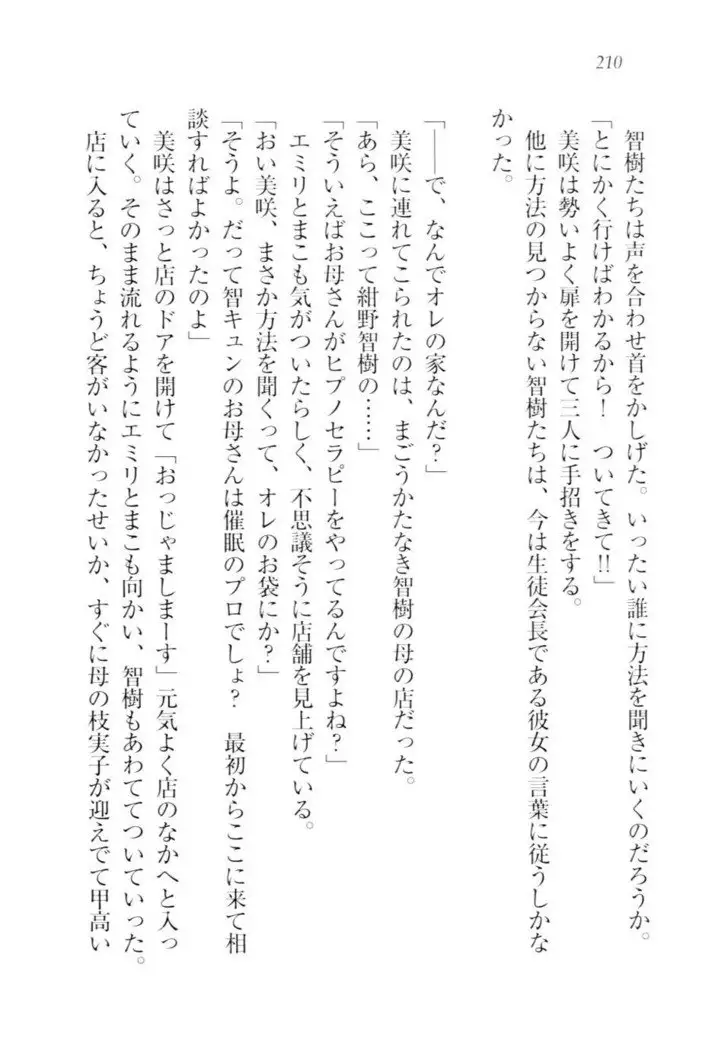 210
智樹たちは声を合わせ首をかしげた。いったい誰に方法を聞きにいくのだろうか。
「とにかく行けばわかるから！　ついてきて!!」
美咲は勢いよく扉を開けて三人に手招きをする。
他に方法の見つからない智樹たちは、今は生徒会長である彼女の言葉に従うしかな
かった。
「――で、なんでオレの家なんだ？」
美咲に連れてこられたのは、まごうかたなき智樹の母の店だった。
「あら、ここって紺野智樹の……」
「そういえばお母さんがヒプノセラピーをやってるんですよね？」
エミリとまこも気がついたらしく、不思議そうに店舗を見上げている。
「おい美咲、まさか方法を聞くって、オレのお袋にか？」
「そうよ。だって智キュンのお母さんは催眠のプロでしょ？　最初からここに来て相
談すればよかったのよ」
美咲はさっと店のドアを開けて「おっじゃましまーす」元気よく店のなかへと入っ
ていく。そのまま流れるようにエミリとまこも向かい、智樹もあわててついていった。
店に入ると、ちょうど客がいなかったせいか、すぐに母の枝実子が迎えでて甲高い